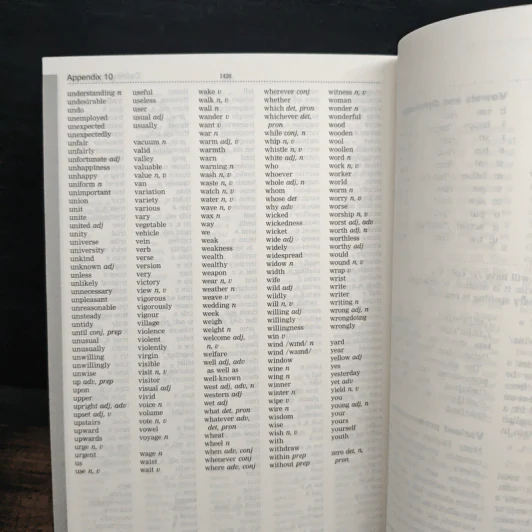 Appendix 10
1428
understanding n
undesirable
undo
unemployed
unexpected
unexpectedly
unfair
unfairly
unfortunate adj
unhappiness
unhappy
uniform n
unimportant
union
unit
unite
united adj
unity
universe
university
unkind
unknown adj
unless
unlikely
unnecessary
unpleasant
unreasonable
unsteady
untidy
until conj, prep
unusual
unusually
unwilling
unwillingly
unwise
up adv, prep
upon
upper
upright adj, adv
upset adj, v
upstairs
upward
upwards
urge n, v
urgent
us
use n, v
useful
useless
user
usual adj
usually
vacuum n
valid
valley
valuable
value n, v
van
variation
variety
various
vary
vegetable
vehicle
vein
verb
verse
version
very
victory
view n, v
vigorous
vigorously
vigour
village
violence
violent
violently
virgin
visible
visit n, v
visitor
visual adj
vivid
voice n
volume
vote n, v
vowel
voyage n
wage n
waist
wait v
wake v
walk n, v
wall n
wander v
want v
war n
warm adj, v
warmth
warn
warning n
wash n, v
waste n, v
watch n, v
water n, v
wave n, v
wax n
way
we
weak
weakness
wealth
wealthy
weapon
wear n, v
weather n
weave v
wedding n
week
weigh
weight n
welcome adj,
n, v
welfare
well adj, adv
as well as
well-known
west adj, adv, n
western adj
wet adj
what det, pron
whatever adv,
det, pron
wheat
wheel n
when adv, conj
whenever conj
where adv, conj
wherever conj
whether
which det, pron
whichever det,
pron
while conj, n
whip n, v
whistle n, v
white adj, n
who
whoever
whole adj, n
whom
whose det
why adv
wicked
wickedness
wicket
wide adj
widely
widespread
widow n
width
wife
wild adj
wildly
will n, v
willing adj
willingly
willingness
win v
wind /wɪnd/ n
wind /waɪnd/
window
wine n
wing n
winner
winter n
wipe v
wire n
wisdom
wise
wish n, v
with
withdraw
within prep
without prep
witness n, v
woman
wonder n, v
wonderful
wood
wooden
wool
woollen
word n
work n, v
worker
world
worm n
worry n, v
worse
worship n, v
worst adj, adv
worth adj, n
worthless
worthy adj
would
wound n, v
wrap v
wrist
write
writer
writing n
wrong adj, n
wrongdoing
wrongly
yard
year
yellow adj
yes
yesterday
yet adv
yield n, v
you
young adj, n
your
yours
yourself
youth
zero det, n,
pron